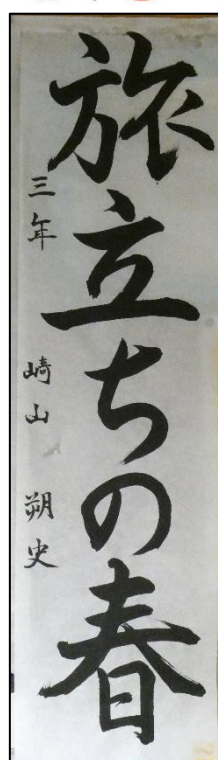 旅立ちの春
三年 崎山 朔史